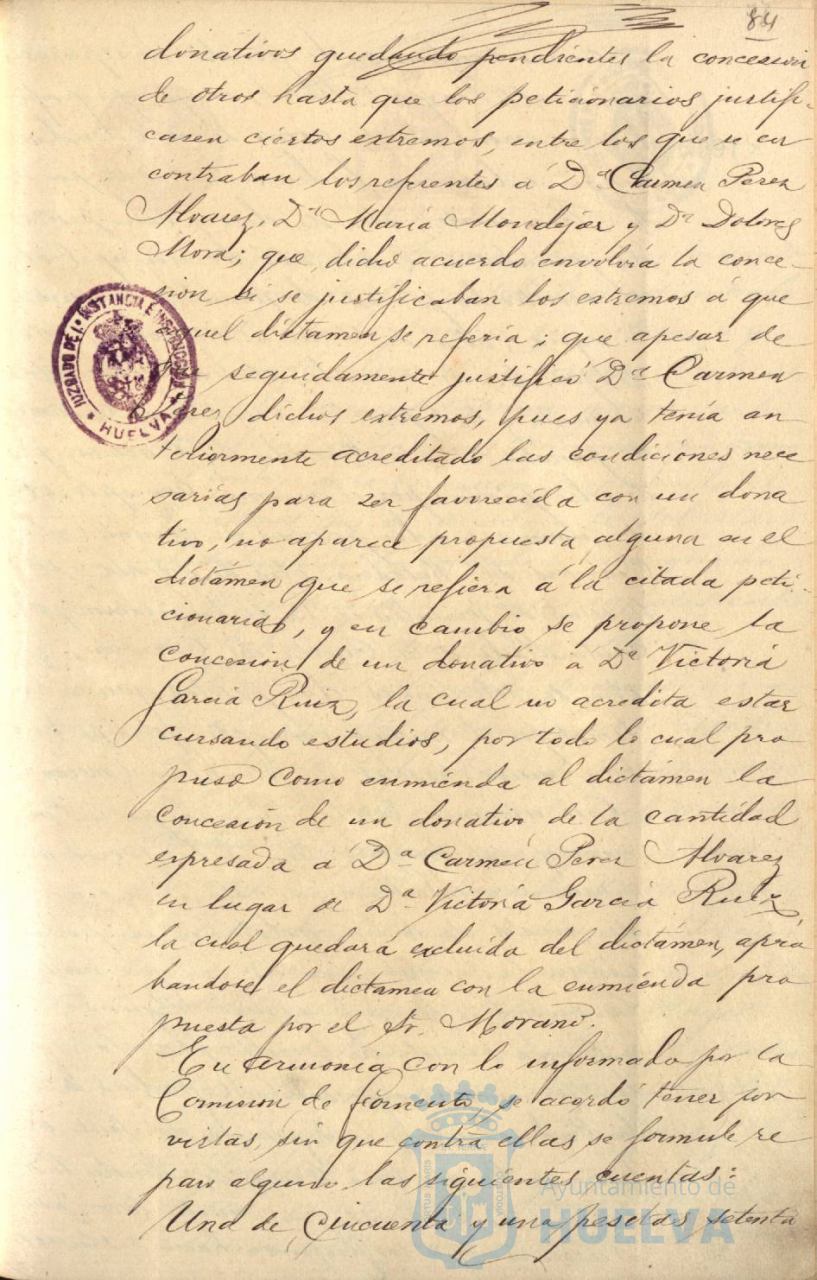 84
donativos quedando pendientes la concesion
de otros hasta que los peticionarios justifi-
casen ciertos extremos, entre los que se en
contraban los referentes á Dª Carmen Perez
Alvarez, Dª María Mondejar y Dª Dolores
Mora; que dicho acuerdo envolvia la conce-
sion si se justificaban los extremos á que
aquel dictamen se referia; que apesar de
que seguidamente justificó Dª Carmen
Perez dichos extremos, pues ya tenía an
teriormente acreditado las condiciones nece
sarias para ser favorecida con un dona
tivo, no aparece propuesta alguna en el
dictámen que se refiera á la citada peti-
cionaria, y en cambio se propone la
concesión de un donativo á Dª Victoria
Garcia Ruiz, la cual no acredita estar
cursando estudios, por todo lo cual pro
puso como enmienda al dictámen la
concesión de un donativo de la cantidad
espresada á Dª Carmen Perez Alvarez
en lugar de Dª Victoria Garcia Ruiz,
la cual quedará excluida del dictámen, apro
bandose el dictamen con la enmienda pro
puesta por el Sr. Morano.
En armonia con lo informado por la
Comision de Fomento, se acordó tener por
vistas, sin que contra ellas se formule re
paro alguno las siguientes cuentas:
Una de cincuenta y una pesetas setenta
JUZGADO DE 1ª INSTANCIA E INSTRUCCION
HUELVA
Ayuntamiento de
HUELVA